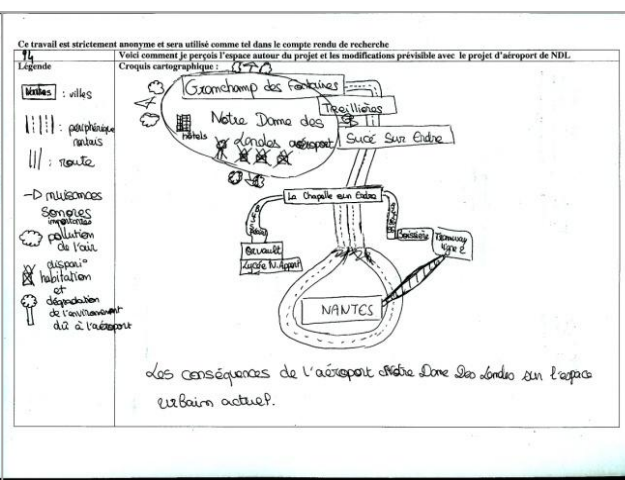 Ce travail est strictement anonyme et sera utilisé comme tel dans le compte rendu de recherche
14
Voici comment je perçois l'espace autour du projet et les modifications prévisible avec le projet d'aéroport de NDL
Légende
Croquis cartographique :
villes
: périphérique
nantais
: route
nuisances
sonores
importantes
pollution
de l'air
dispari°
habitation
et
dégradation
de l'environnement
dû à l'aéroport
Granchamp des Fontaines
Treillières
Notre Dame des
Landes aéroport
hôtels
Sucé Sur Erdre
La Chapelle sur Erdre
Orvault
Lycée N. Appert
Tramway
ligne 2
NANTES
Les conséquences de l'aéroport Notre Dame Des Landes sur l'espace
urbain actuel.